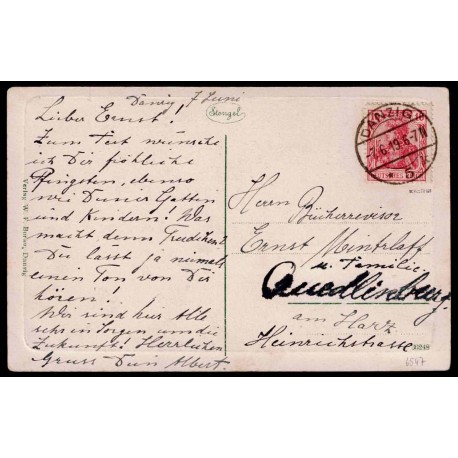 Danzig, 7 Juni
Stengel
Lieber Ernst!
Zum Fest wünsche
ich Dir fröhliche
Pfingsten, ebenso
wie Deiner Gattin
und Kindern! Was
macht denn
Du lasst ja niemals
einen Ton von Dir
hören!
Wir sind hier Alle
sehr in Sorgen um die
Zukunft! Herzlichen
Gruss Dein Albert.
Verlag W. F. Burau, Danzig
DANZIG
6.19.6-7N
* 5
Herrn
Bücherrevisor
Ernst Mintzlaff
u. Familie
Quedlinburg
am Harz
Heinrichstrasse
30248